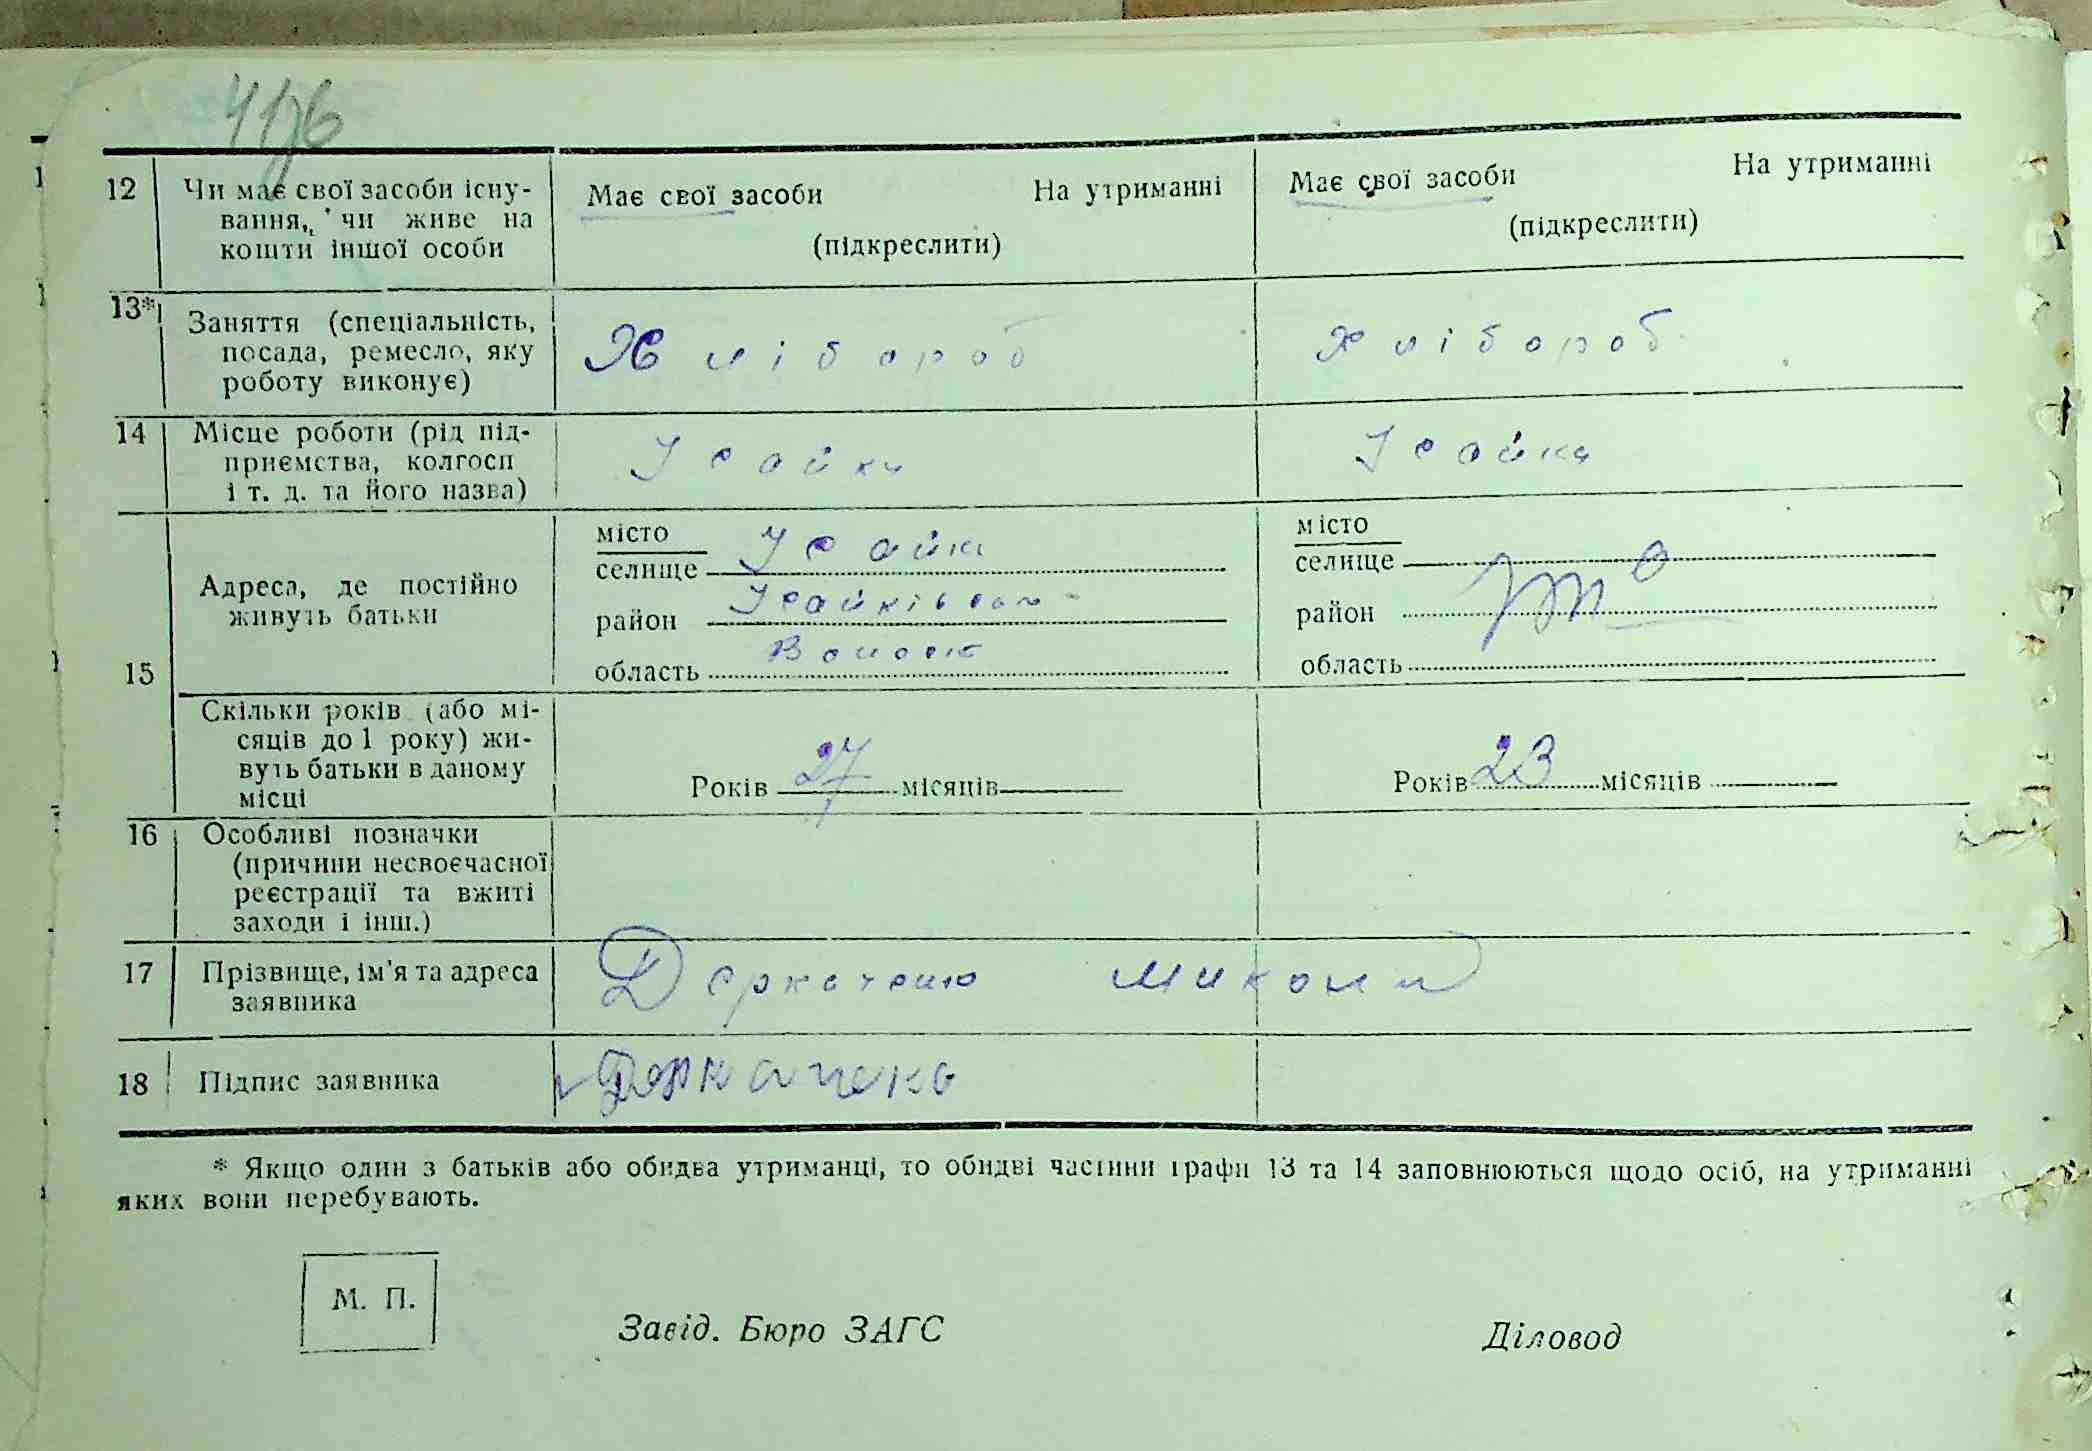 12 Чи має свої засоби існу-
вання, чи живе на
кошти іншої особи
Має свої засоби На утриманні
(підкреслити)
Має свої засоби На утриманні
(підкреслити)
13* Заняття (спеціальність,
посада, ремесло, яку
роботу виконує)
Хлібороб
Хлібороб
14 Місце роботи (рід під-
приємства, колгосп
і т. д. та його назва)
15
Адреса, де постійно
живуть батьки
місто
селище
район
область
місто
селище
район
область
Скільки років (або мі-
сяців до 1 року) жи-
вуть батьки в даному
місці
Років 27 місяців
Років 23 місяців
16 Особливі позначки
(причини несвоєчасної
реєстрації та вжиті
заходи і інш.)
17 Прізвище, ім'я та адреса
заявника
18 Підпис заявника
* Якщо один з батьків або обидва утриманці, то обидві частини графи 13 та 14 заповнюються щодо осіб, на утриманні
яких вони перебувають.
М. П.
Завід. Бюро ЗАГС
Діловод